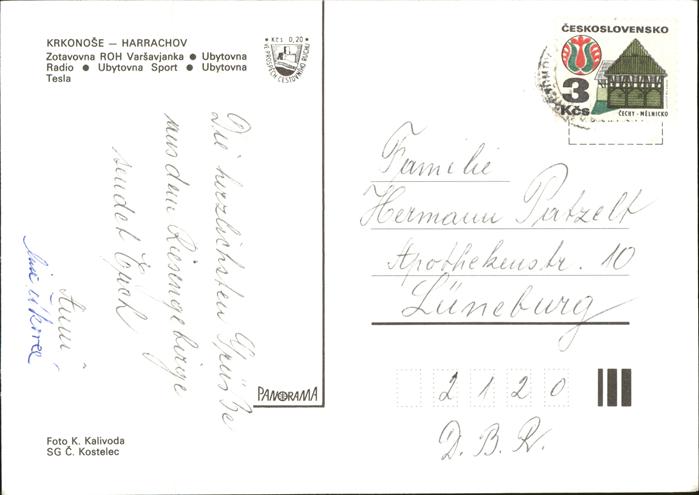 KRKONOŠE — HARRACHOV
Zotavovna ROH Varšavjanka ● Ubytovna
Radio ● Ubytovna Sport ● Ubytovna
Tesla
Kčs 0,20
VE PROSPĚCH CESTOVNÍHO RUCHU
ČESKOSLOVENSKO
3
Kčs
ČECHY - MĚLNICKO
Die herzlichsten Grüsse
aus dem Riesengebirge
sendet Euch
Anni
Familie
Hermann Patzelt
Apothekenstr. 10
Lüneburg
2120
D.B.R.
PANORAMA
Foto K. Kalivoda
SG Č. Kostelec